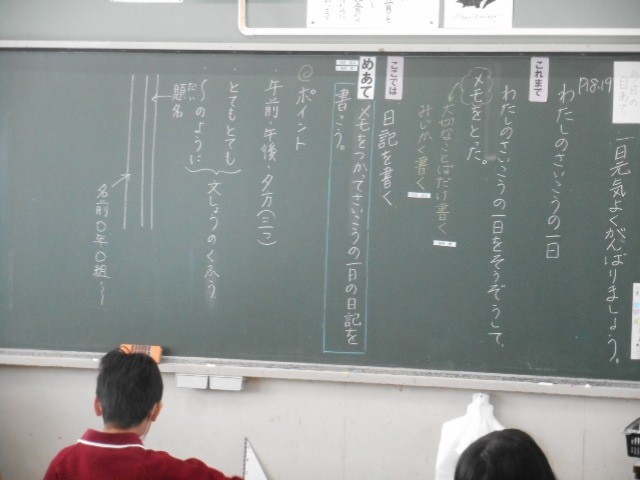 一日元気よくがんばりましょう。
P18.19
これまで
わたしのさいこうの一日
わたしのさいこうの一日をそうぞうして、
メモをとった。
大切なことばだけ書く
みじかく書く
ここでは
日記を書く
めあて
メモをつかってさいこうの一日の日記を
書こう。
ポイント
午前・午後・夕方(三つ)
とてもとても
〜のように
文しょうのくふう
だい
題名
名前〇年〇組〜